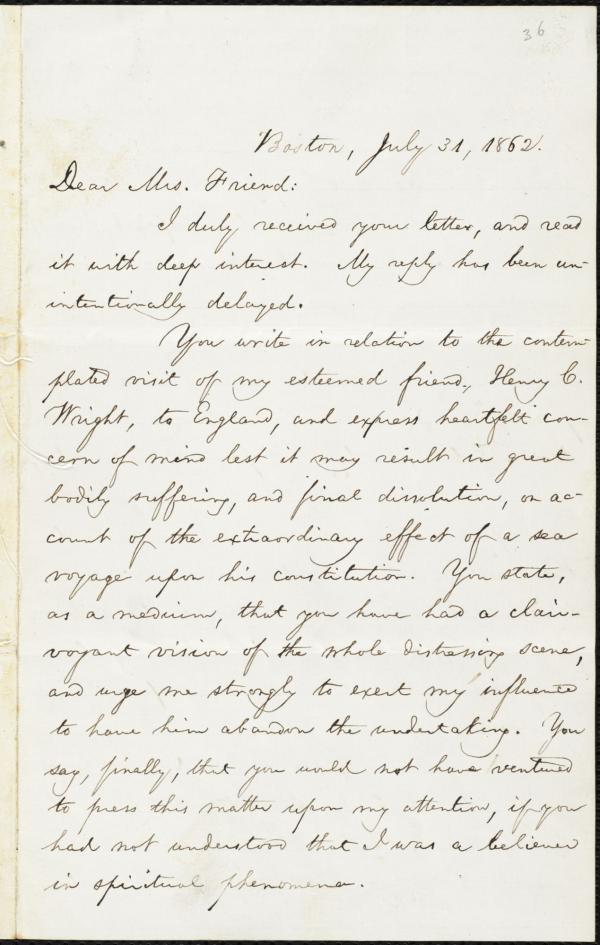 36
Boston, July 31, 1862.
Dear Mrs. Friend:
I duly received your letter, and read
it with deep interest. My reply has been un-
intentionally delayed.
You write in relation to the contem-
plated visit of my esteemed friend, Henry C.
Wright, to England, and express heartfelt con-
cern of mind lest it may result in great
bodily suffering, and final dissolution, on ac-
count of the extraordinary effect of a sea
voyage upon his constitution. You state,
as a medium, that you have had a clair-
voyant vision of the whole distressing scene,
and urge me strongly to exert my influence
to have him abandon the undertaking. You
say, finally, that you would not have ventured
to press this matter upon my attention, if you
had not understood that I was a believer
in spiritual phenomena.